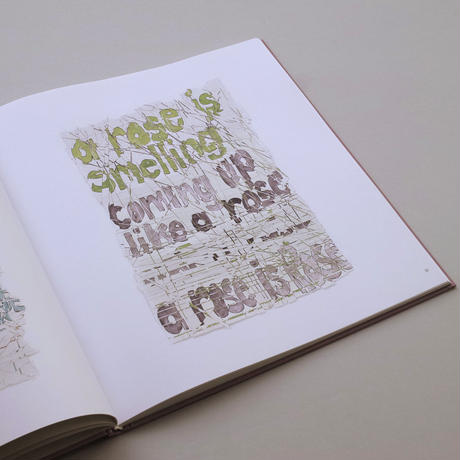 a rose is
smelling
coming up
like a rose
a rose is Rose